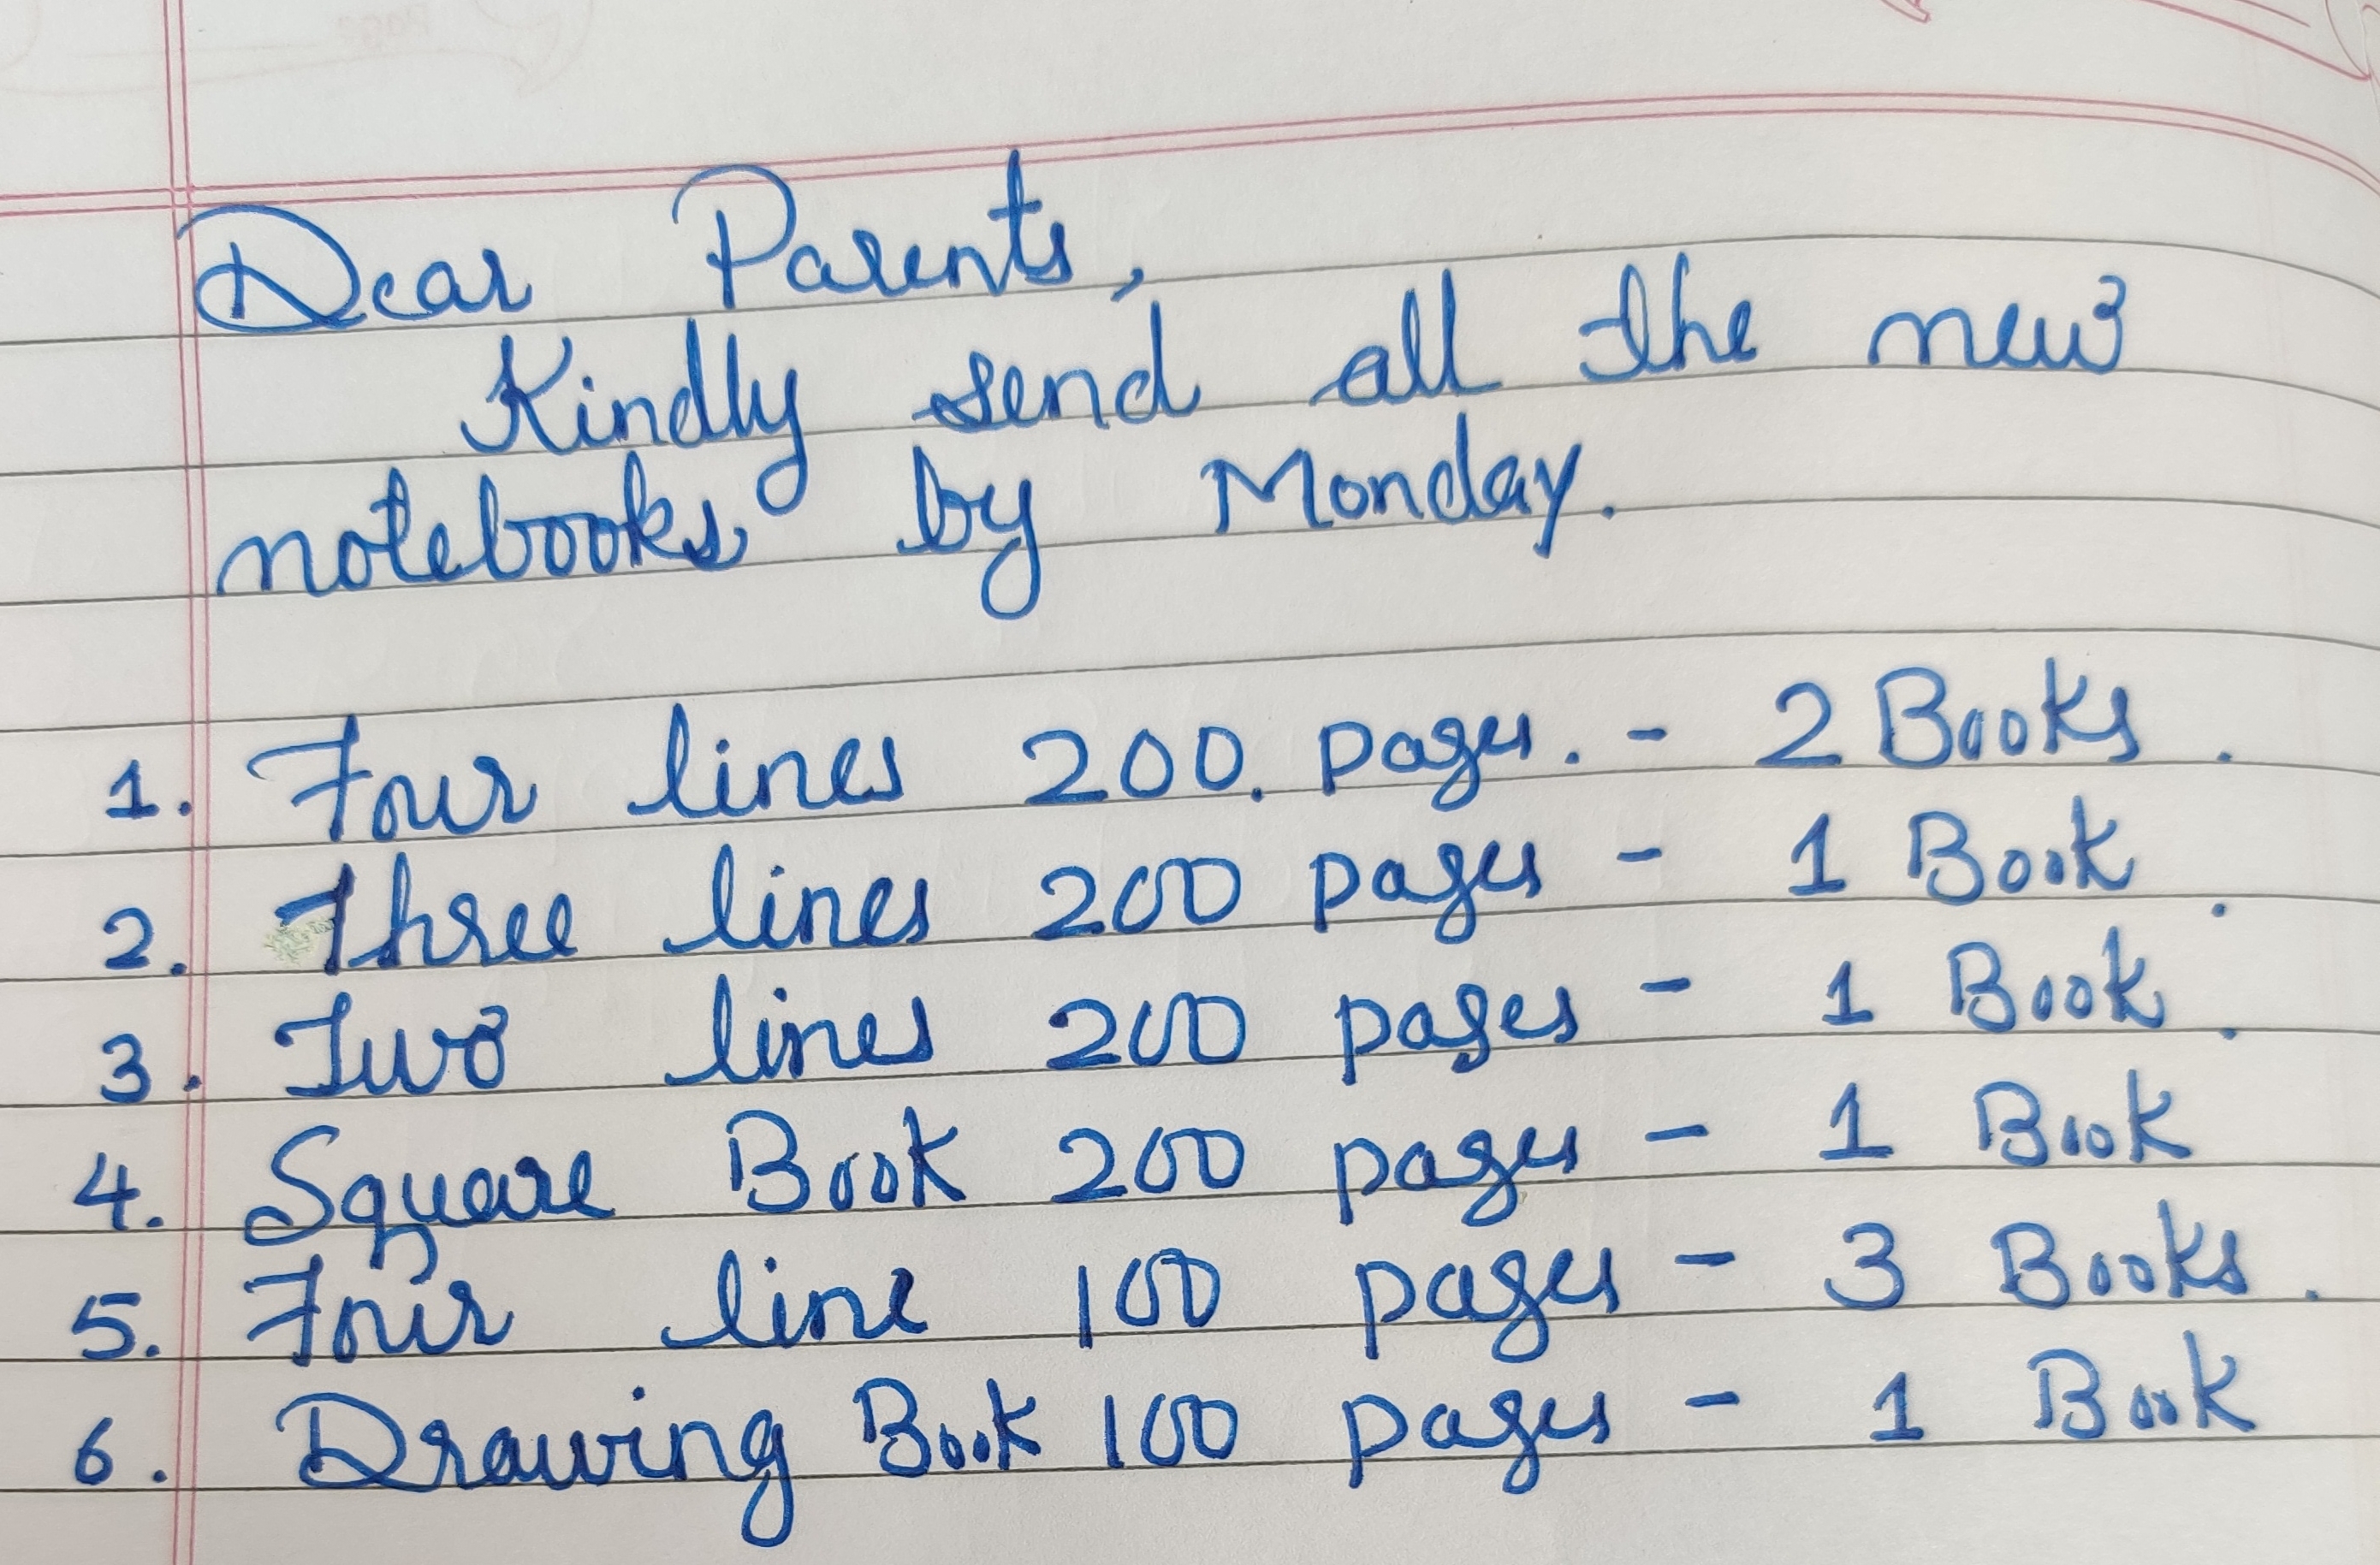 Dear Parents,
Kindly send all the new
notebooks by Monday.
1. Four lines 200. pages. - 2 Books.
2. Three lines 200 pages - 1 Book.
3. Two lines 200 pages - 1 Book.
4. Square Book 200 pages - 1 Book
5. Four line 100 pages - 3 Books.
6. Drawing Book 100 pages - 1 Book